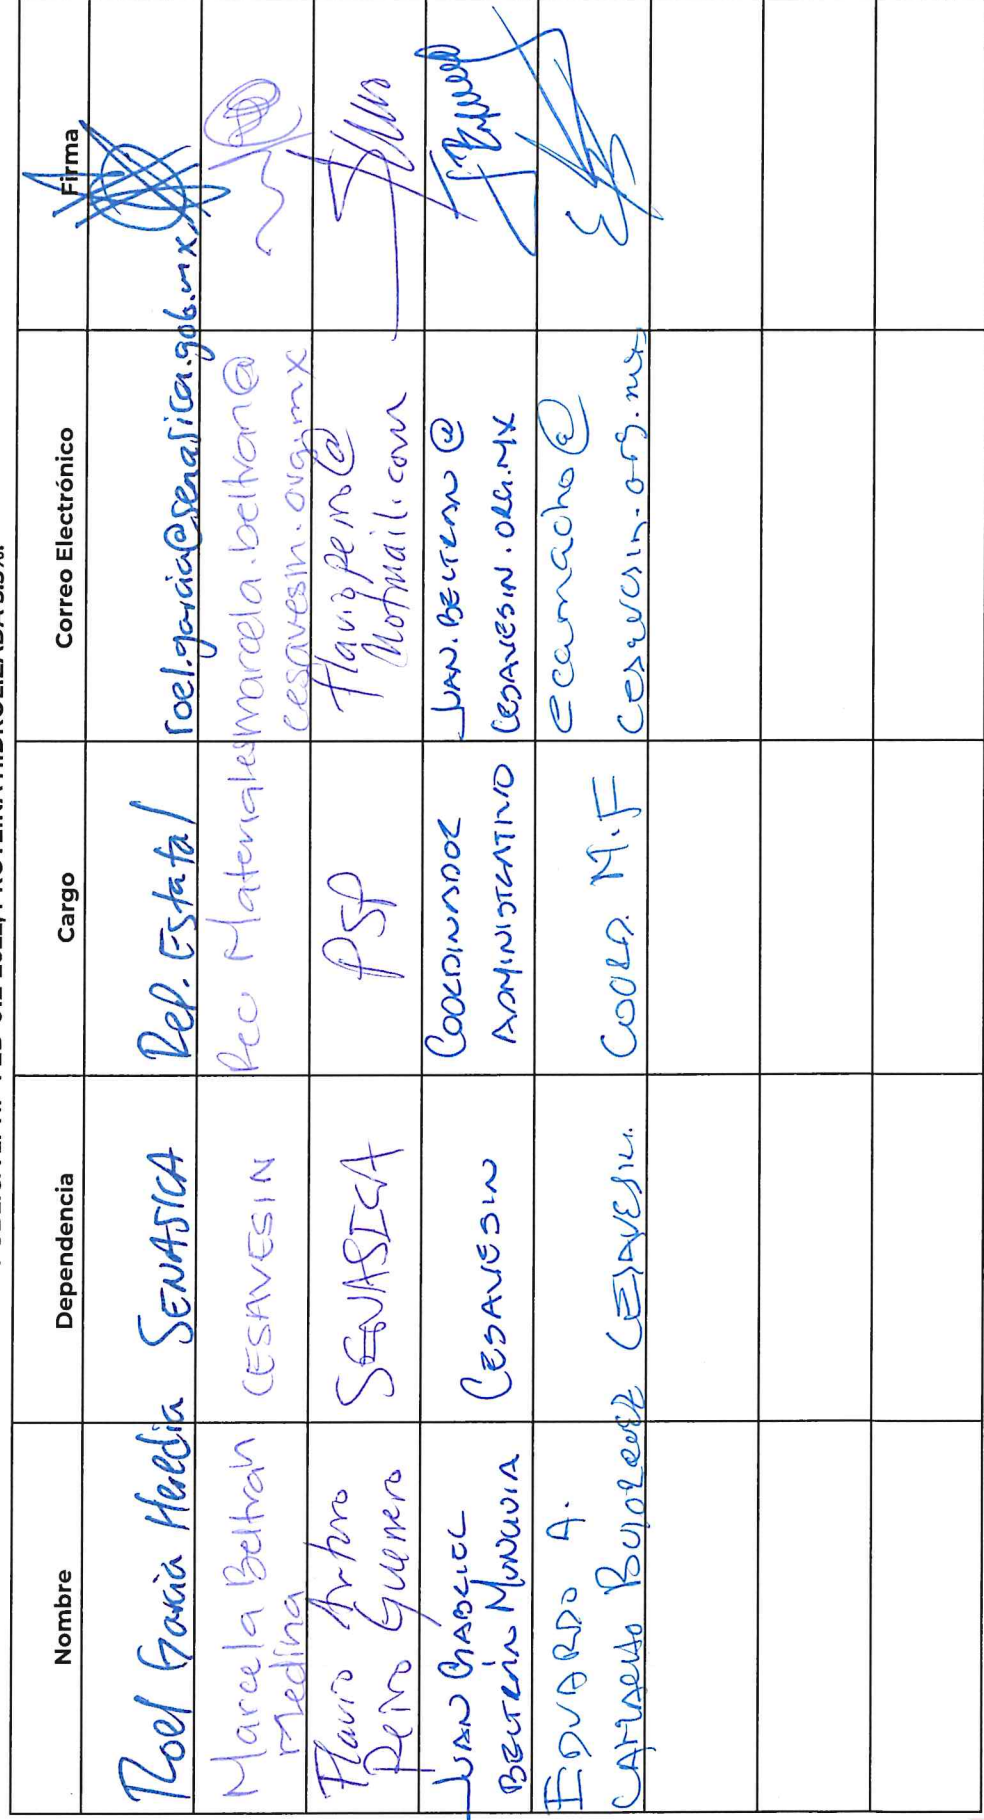 PROTEINA HIDROLIZADA 5.5%.
Nombre Dependencia Cargo Correo Electrónico Firma
Roel García Heredia SENASICA Rep. Estatal roel.garcia@senasica.gob.mx
Marcela Beltran Medina CESAVESIN Rec Materiales marcela.beltran@
cesavesin.org.mx
Flavio Arturo Peiro Guerrero SENASICA PSP flaviopeiro@
hotmail.com
JUAN GABRIEL BELTRÁN MUNGUIA CESAVESIN COORDINADOR ADMINISTRATIVO JUAN.BELTRAN@
CESAVESIN.ORG.MX
EDUARDO A. CAMACHO BOJORQUEZ CESAVESIN. COORD. M.F ecamacho@
cesavesin.org.mx